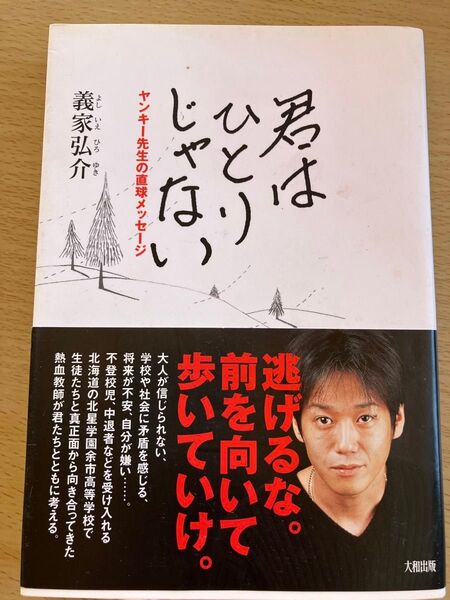 君は
ひとり
じゃない
ヤンキー先生の直球メッセージ
よし いえ ひろ ゆき
義家弘介
逃げるな。
前を向いて
歩いていけ。
大人が信じられない、
学校や社会に矛盾を感じる、
将来が不安、自分が嫌い……。
不登校児、中退者などを受け入れる
北海道の北星学園余市高等学校で
生徒たちと真正面から向き合ってきた
熱血教師が君たちとともに考える。
大和出版